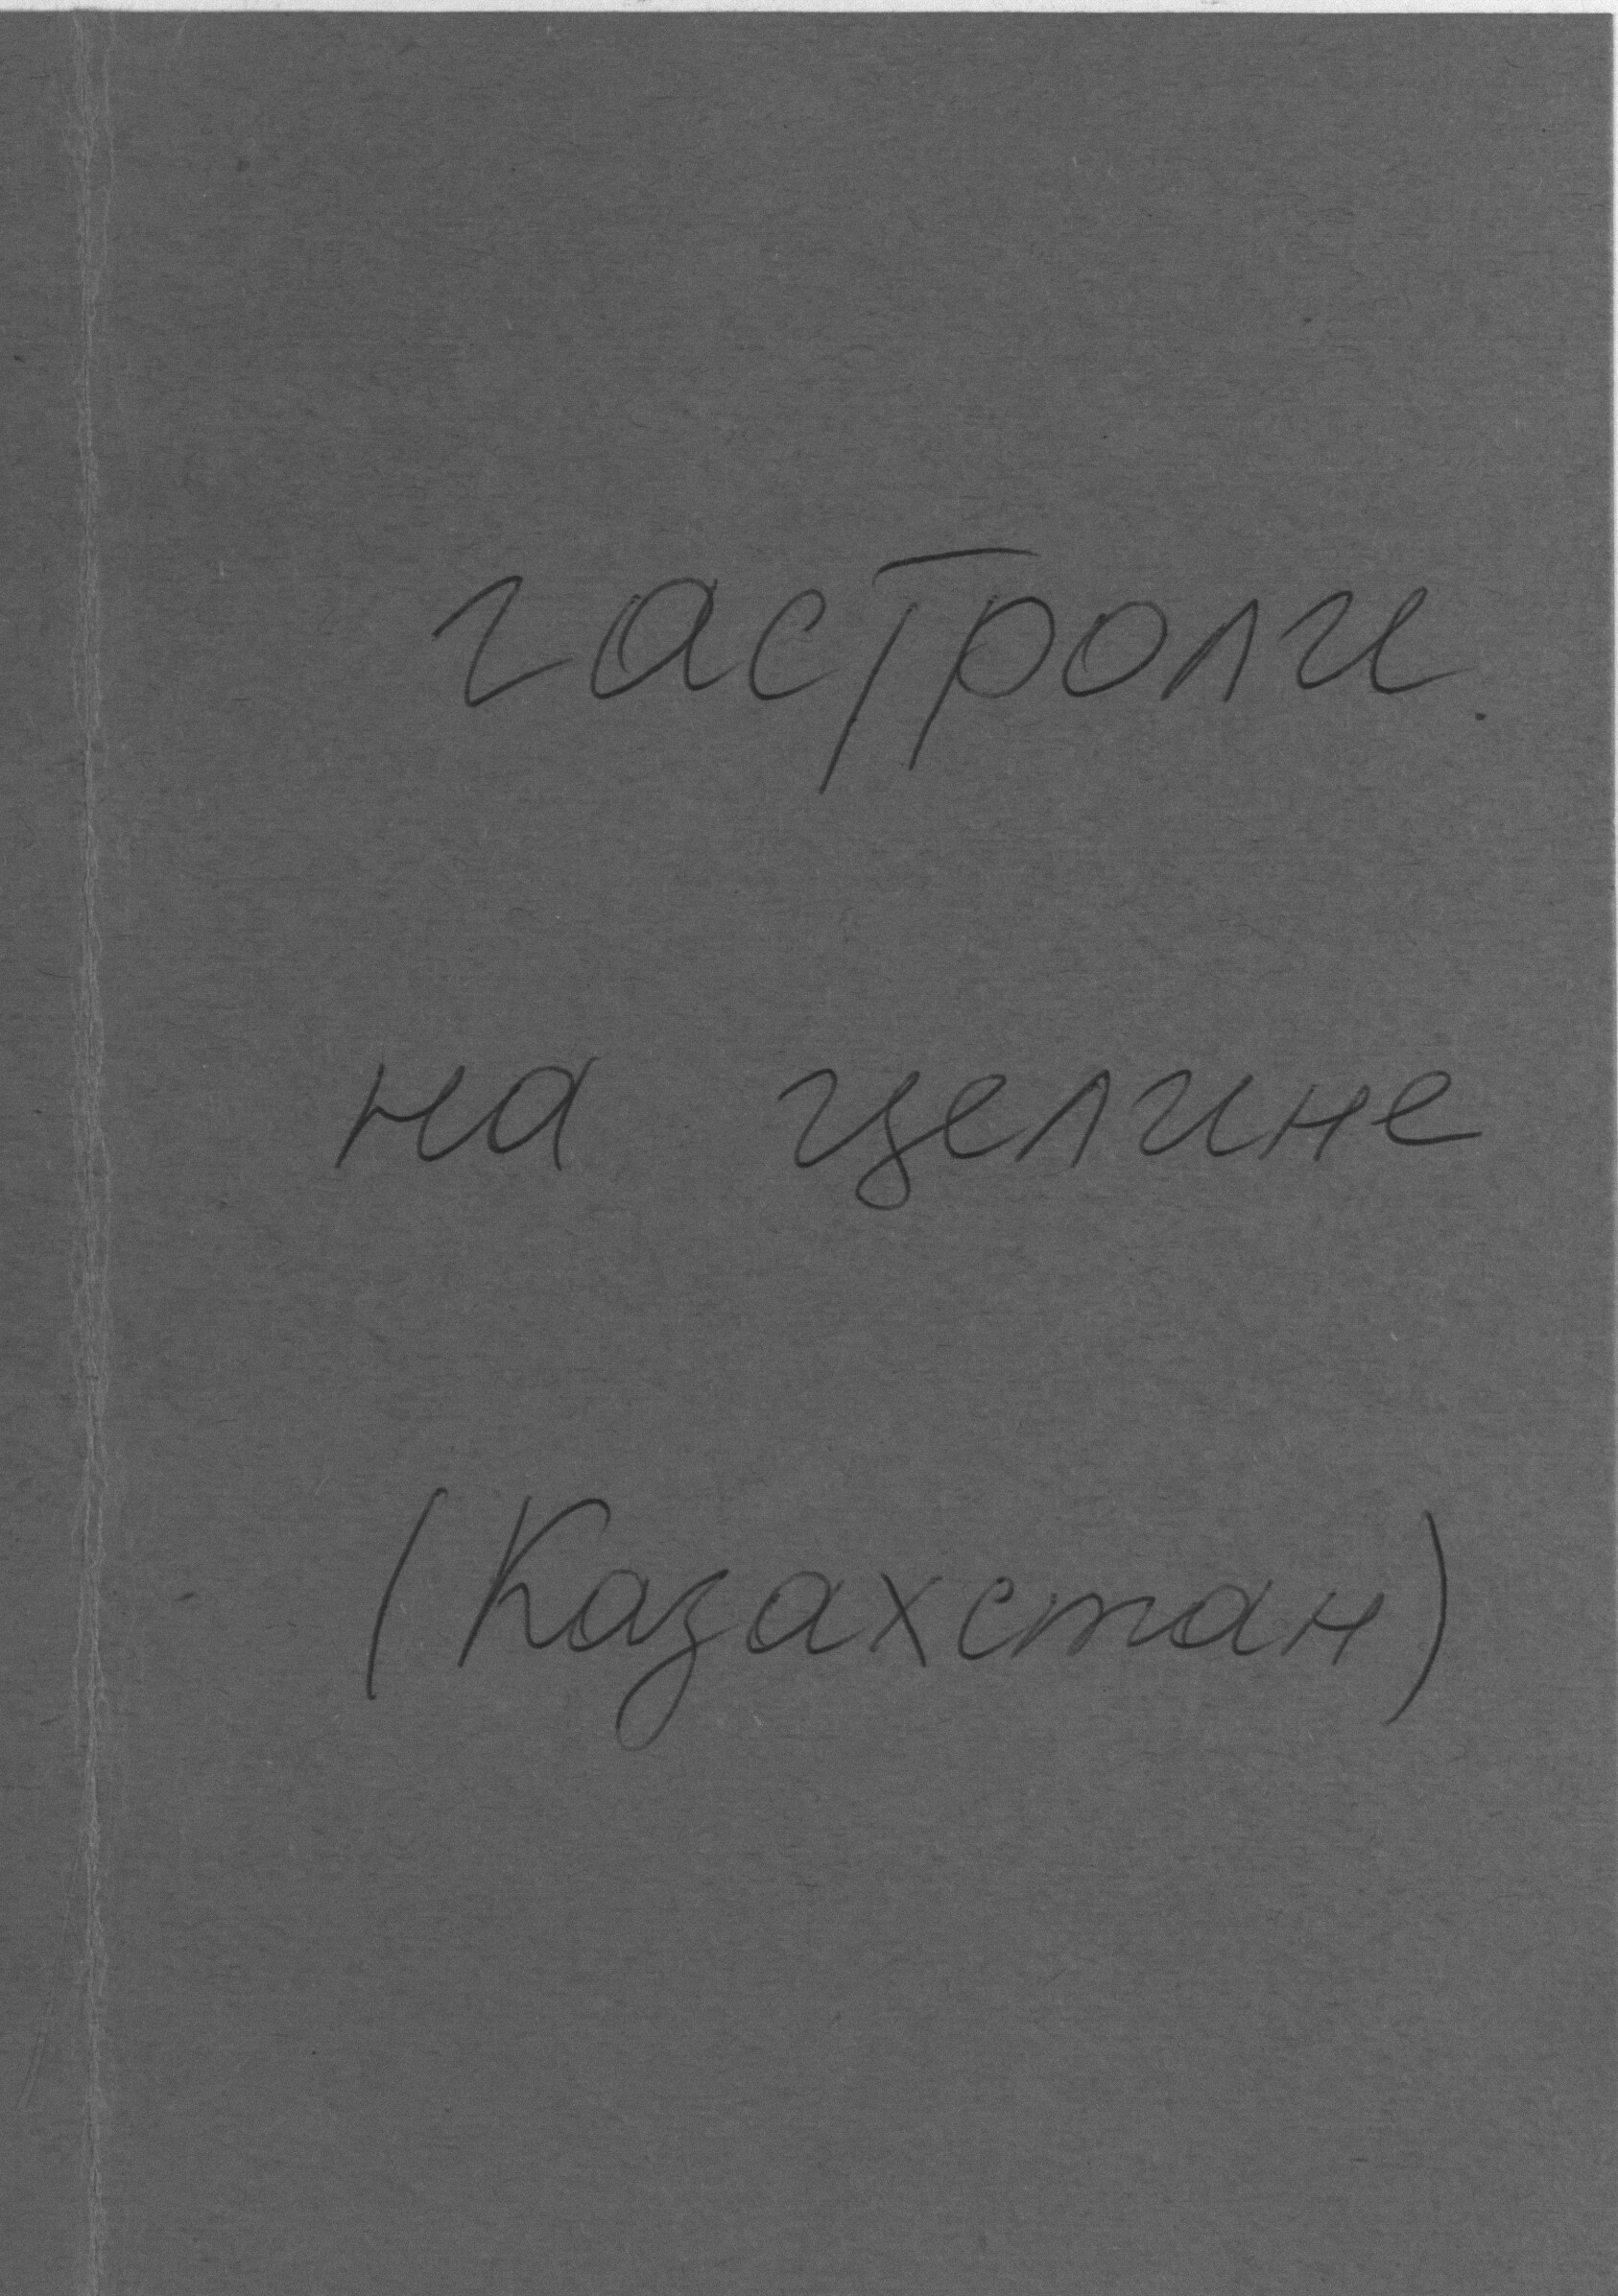 гастроли
на целине
(Казахстан)